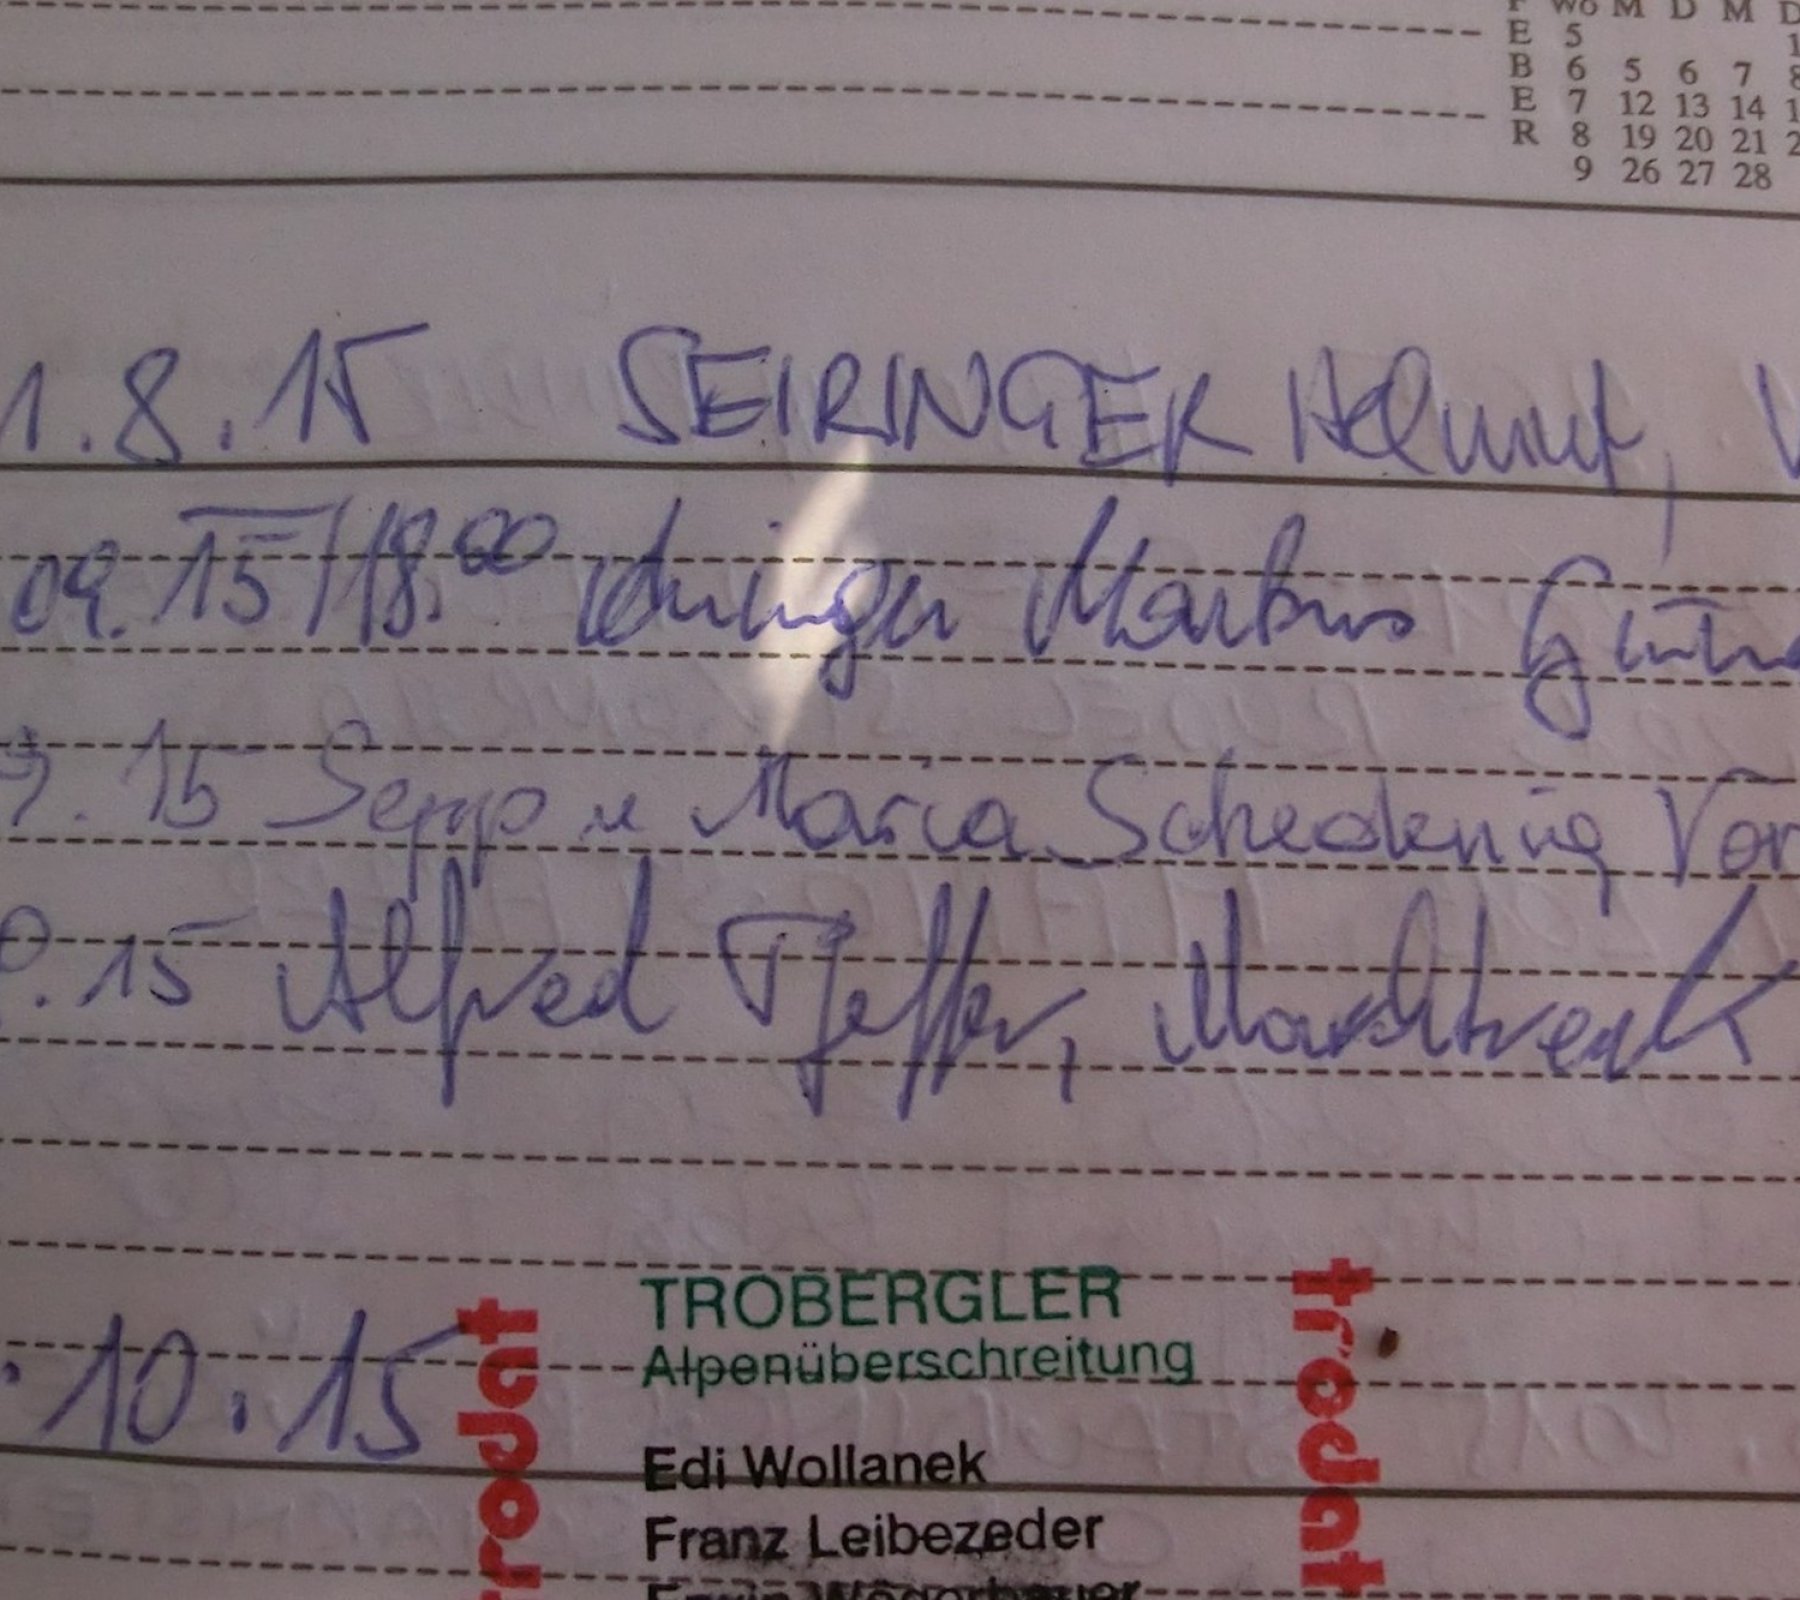 F Wo M D M D
E 5 1
B 6 5 6 7 8
E 7 12 13 14 1
R 8 19 20 21 2
9 26 27 28
1.8.15 SEIRINGER Helmut, V
09.15/18.00 Markus
9.15 Sepp u Maria Schedenig Vor
9.15 Alfred Pfeffer, Marchtrenk
.10.15
trodat
TROBERGLER
Alpenüberschreitung
Edi Wollanek
Franz Leibezeder
Erwin Wögerbauer
trodat